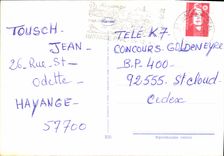 TOUSCH
JEAN
26 Rue St-
Odette
HAYANGE
57700
TELE K7
CONCOURS GOLDENEYE
B.P. 400
92555. St Cloud
Cedex